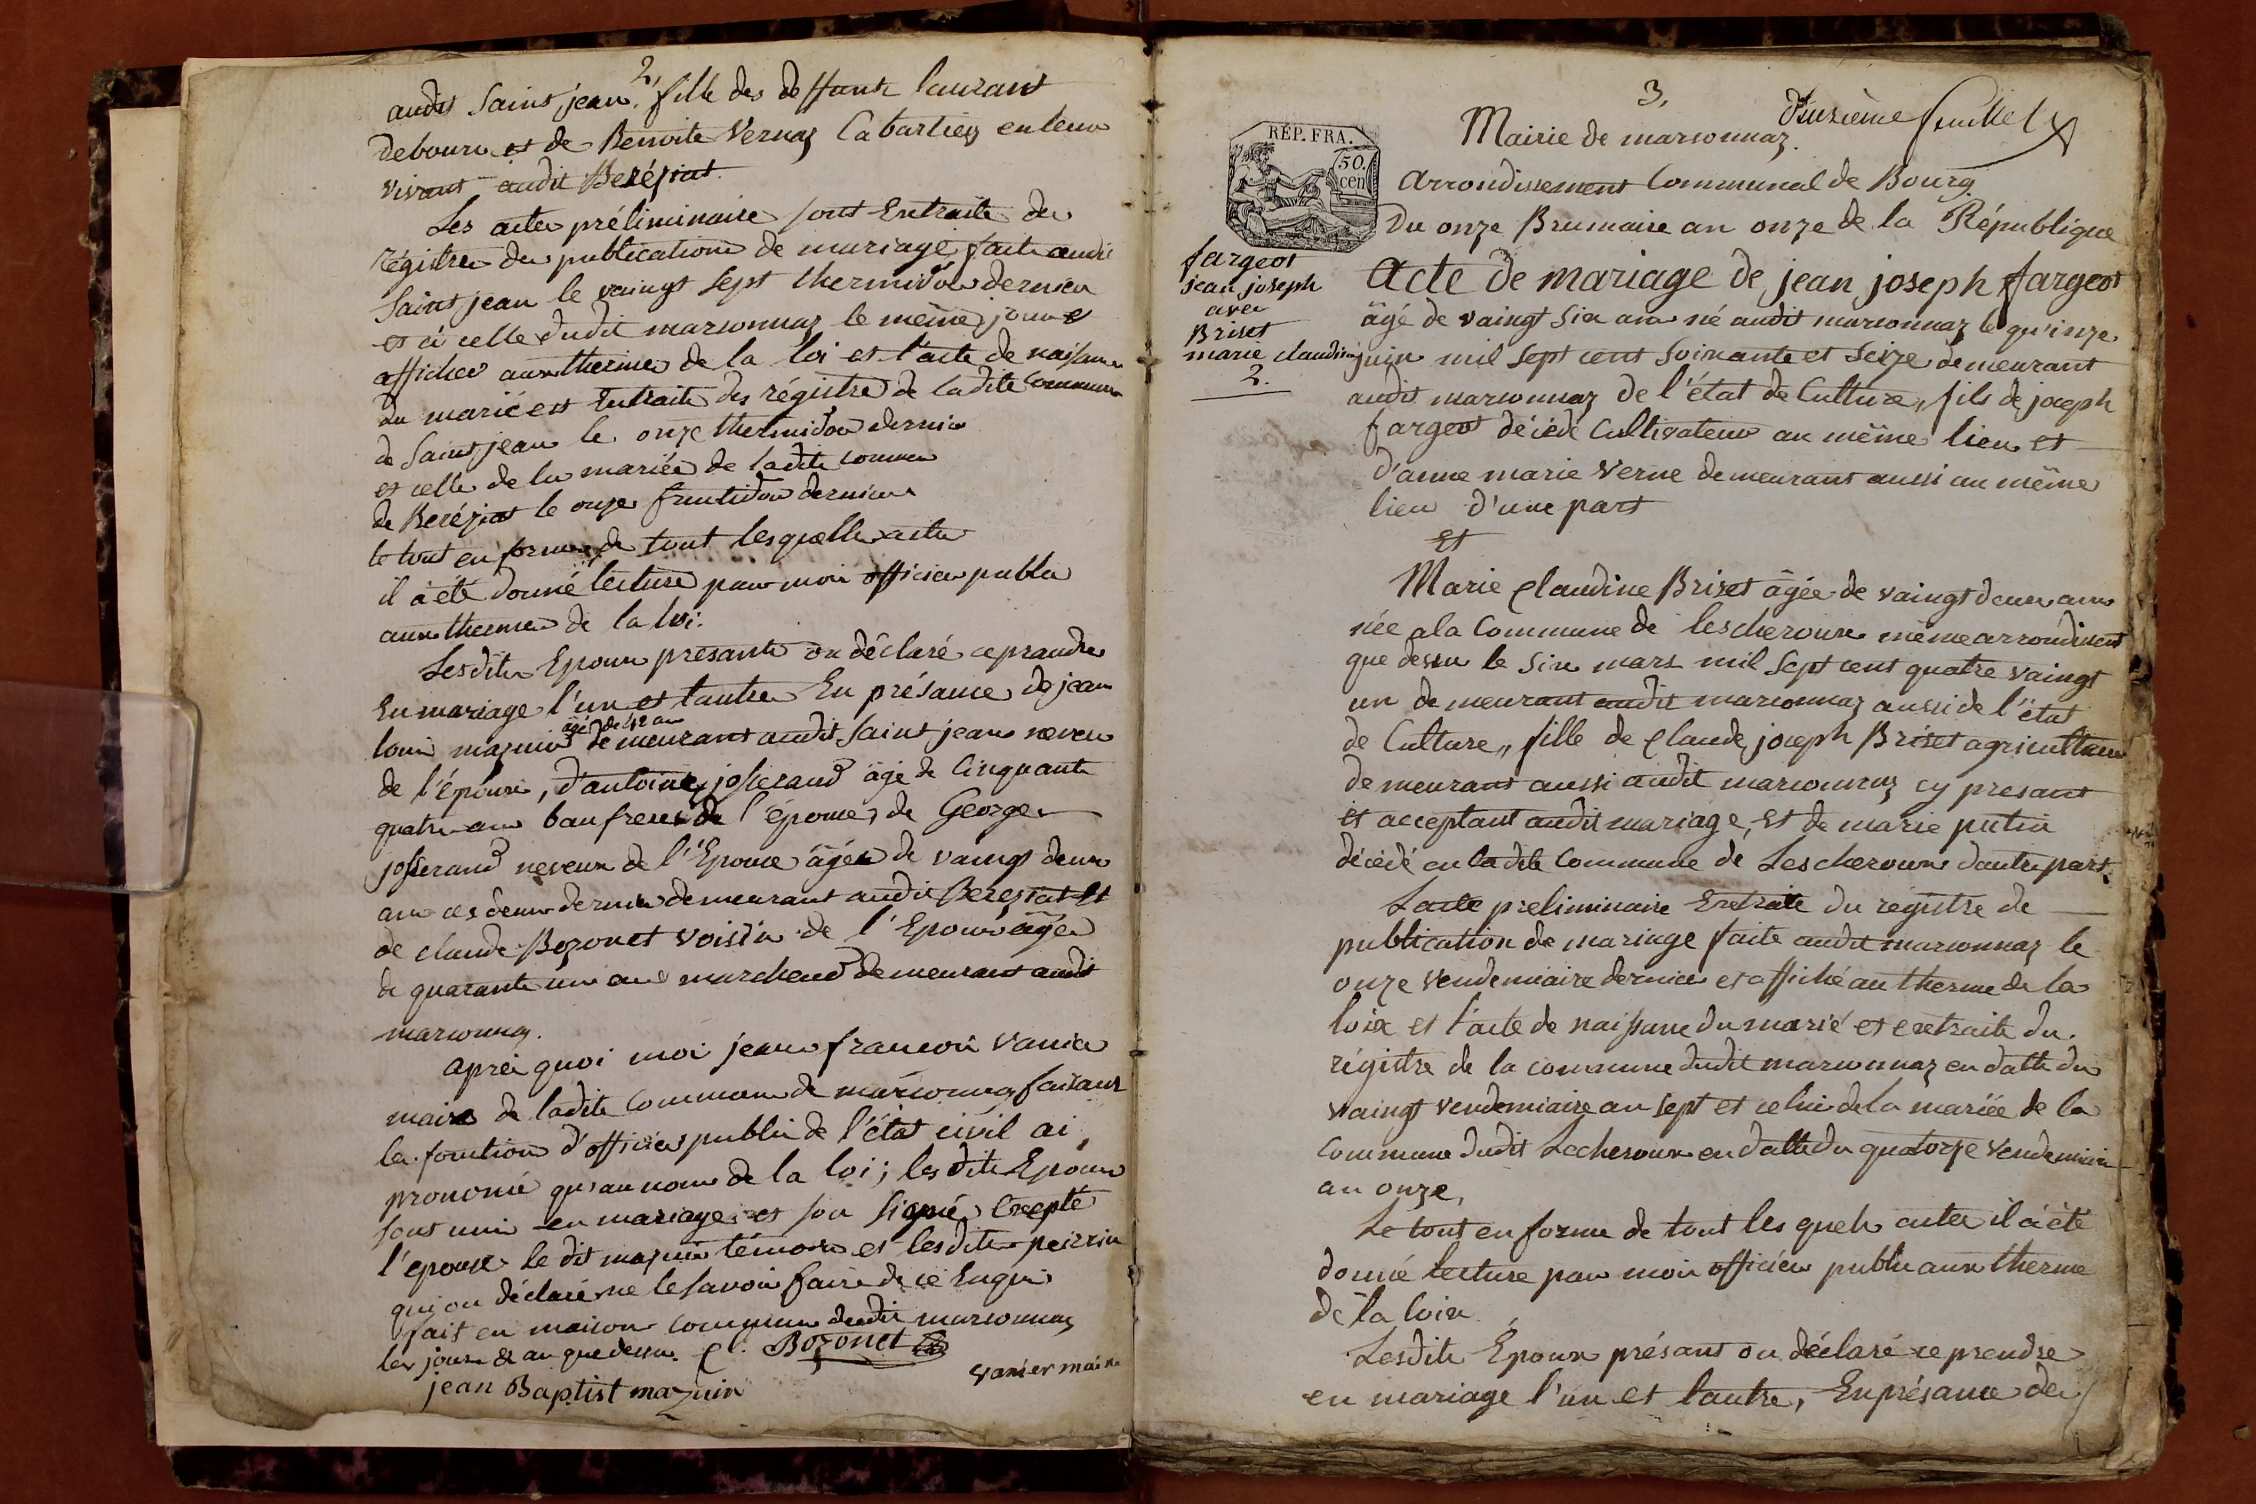 2,
audit Saint jean, fille des deffunt laurant
debourn et de Benoite Vernaz Cabartier en leur
vivant audit Beréziat.
Les actes préliminaire sont Extraite des
régistre des publications de mariage faite audit
Saint jean le vaingt sept thermidor dernier
et à celle dudit marsonnaz le même jour et
affichée aux therme de la loi et l'acte de naissance
du marié est Extraite des régistre de ladite commune
de Saint jean le onze thermidor dernier
et celle de la mariée de ladite commune
de Beréziat le onze fructidor dernier
le tout en forme, de tout lesquelle actes
il à été donné lecture par moi officier public
aux therme de la loi.
Lesdits Epoux présants on déclaré ce prandre
En mariage l'un et l'autre En présance de jean
loui mazuir âgé de 42 ans demeurant audit Saint jean neveu
de l'épouse, d'antoine josserand âgé de Cinquante
quatre ans baufrere de l'épouse, de George
josserand neveux de l'Epouse âgée de vaingt deux
ans ces deux dernier demeurant audit Bereziat Et
de claude Bozonet voisin de l'Epoux âgée
de quarante un ans marchand demeurant audit
marsonnaz.
Aprèi quoi moi jean francois vanier
maire de ladite Commune de marsonnaz faisant
les fonction d'officier public de l'état civil ai,
prononcé qu'au nom de la loi; lesdits Epoux
sont uni en mariage et son signé, Excepté
l'épouse le dit mazuir témoin et lesdits perrin
qui on déclaré ne le savoir faire de ce Enqui
fait en maison commune dudit marsonnaz
les jour & an que dessu. Cl. Bozonet
vanier maire
jean Baptist mazuir
3,
Deuxième feuillet
Mairie de marsonnaz.
RÉP. FRA.
50. cen
Arrondissement Communal de Bourg
Du onze Brumaire an onze de la République
fargeot
jean joseph
avec
Briset
marie claudine
2.
Acte de mariage de jean joseph fargeot
âgé de vaingt six ans né audit marsonnaz le qu'inze
juin mil sept cent soixante et seize demeurant
audit marsonnaz de l'état de Culture, fils de joseph
fargeot décédé Cultivateur au même lieu et
d'anne marie Verne demeurant aussi au même
lieu d'une part
Et
Marie Claudine Briset âgée de vaingt deux ans
née a la Commune de lescheroux même arrondisment
que dessu le six mars mil sept cent quatre vaingt
un demeurant audit marsonnaz aussi de l'état
de Culture, fille de Claude joseph Briset agriculteur
demeurant aussi audit marsonnaz cy presant
et acceptant audit mariage, et de marie putin
décédé en ladite Commune de Lescheroux dautre part.
Lacte preliminaire Extraite du régistre de
publication de mariage faite audit marsonnaz le
onze vendemiaire dernier et affiché au therme de la
loix et l'acte de naissance du marié et extraite du
régistre de la commune dudit marsonnaz en datte du
vaingt vendemiaire an sept et celui de la mariée de la
Commune dudit Lecheroux en datte du quatorze vendemiaire
an onze,
Le tout en forme de tout les quels actes il à été
donné lecture par moi officier public aux therme
de la loix.
Lesdits Epoux présant on déclaré ce prendre
en mariage l'un et lautre, En présance de